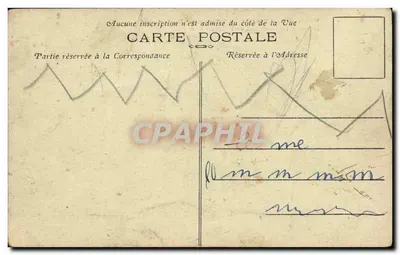 Aucune inscription n'est admise du côté de la Vue
CARTE POSTALE
Partie réservée à la Correspondance
Réservée à l'Adresse
CPAPHIL
me